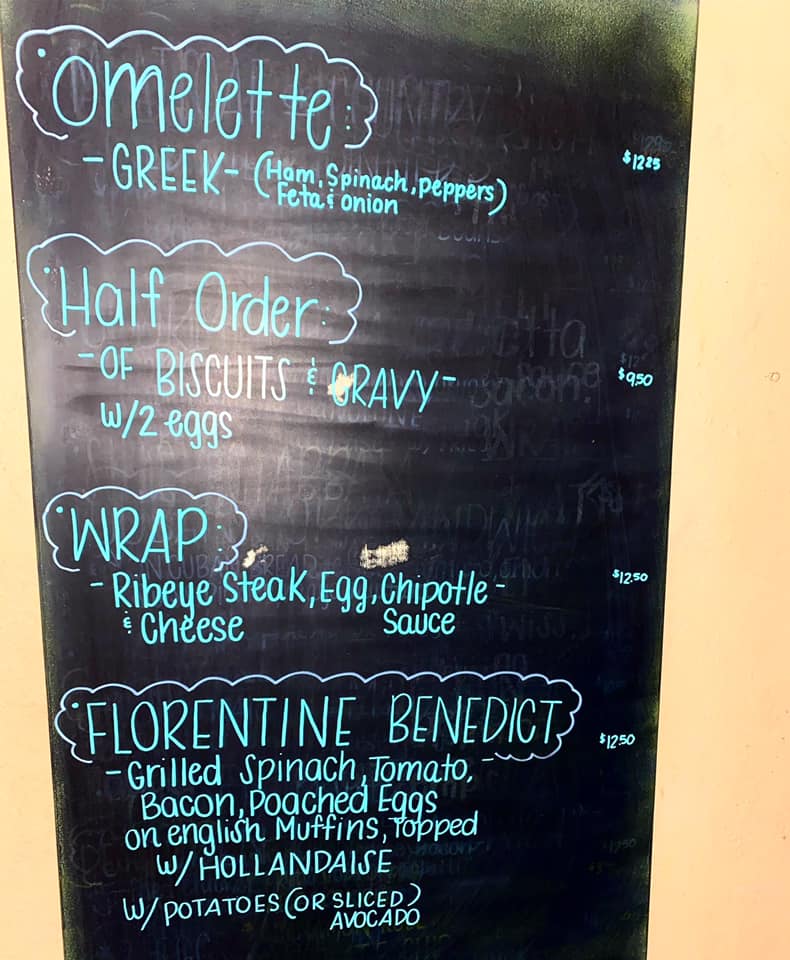 Omelette:
- GREEK - (Ham, Spinach, peppers) $12.25
Feta & onion
Half Order:
- OF BISCUITS & GRAVY - $9.50
w/2 eggs
WRAP:
- Ribeye Steak, Egg, Chipotle - $12.50
& Cheese Sauce
FLORENTINE BENEDICT $12.50
- Grilled Spinach, Tomato, -
Bacon, Poached Eggs
on english Muffins, Topped
W/ HOLLANDAISE
W/ POTATOES (OR SLICED)
AVOCADO